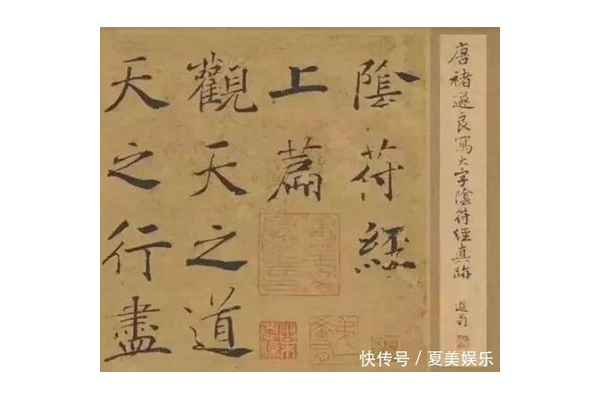 唐褚遂良寫大字陰符經真跡
遐翁
陰符經
上篇
觀天之道
天之行盡
快传号／夏美娱乐